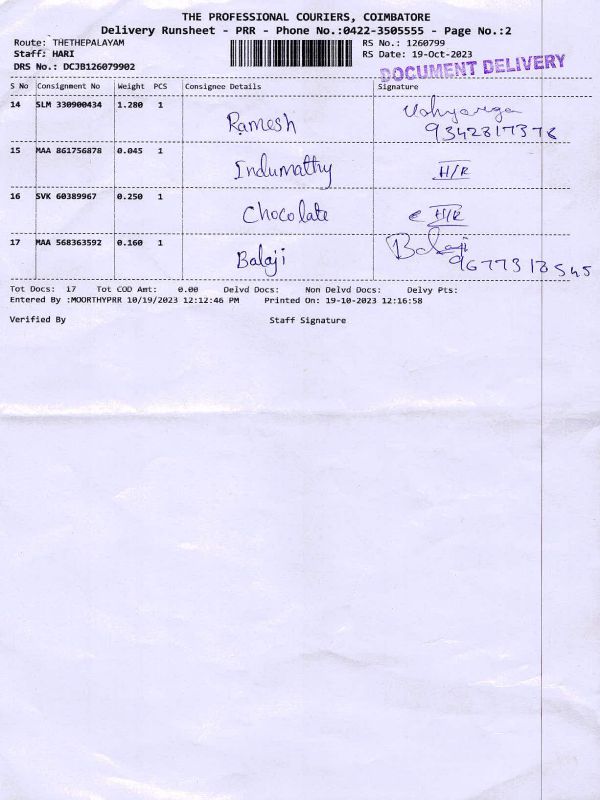 THE PROFESSIONAL COURIERS, COIMBATORE
Delivery Runsheet - PRR - Phone No.:0422-3505555 - Page No.:2
Route: THETHEPALAYAM RS No.: 1260799
Staff: HARI RS Date: 19-Oct-2023
DRS No.: DCJB126079902
DOCUMENT DELIVERY
S No Consignment No Weight PCS Consignee Details Signature
14 SLM 330900434 1.280 1
Ramesh
9342817378
15 MAA 861756878 0.045 1
Indumathy H/R
16 SVK 60389967 0.250 1
Chocolate H/R
17 MAA 568363592 0.160 1
Balaji Balaji
9677318545
Tot Docs: 17 Tot COD Amt: 0.00 Delvd Docs: Non Delvd Docs: Delvy Pts:
Entered By :MOORTHYPRR 10/19/2023 12:12:46 PM Printed On: 19-10-2023 12:16:58
Verified By Staff Signature